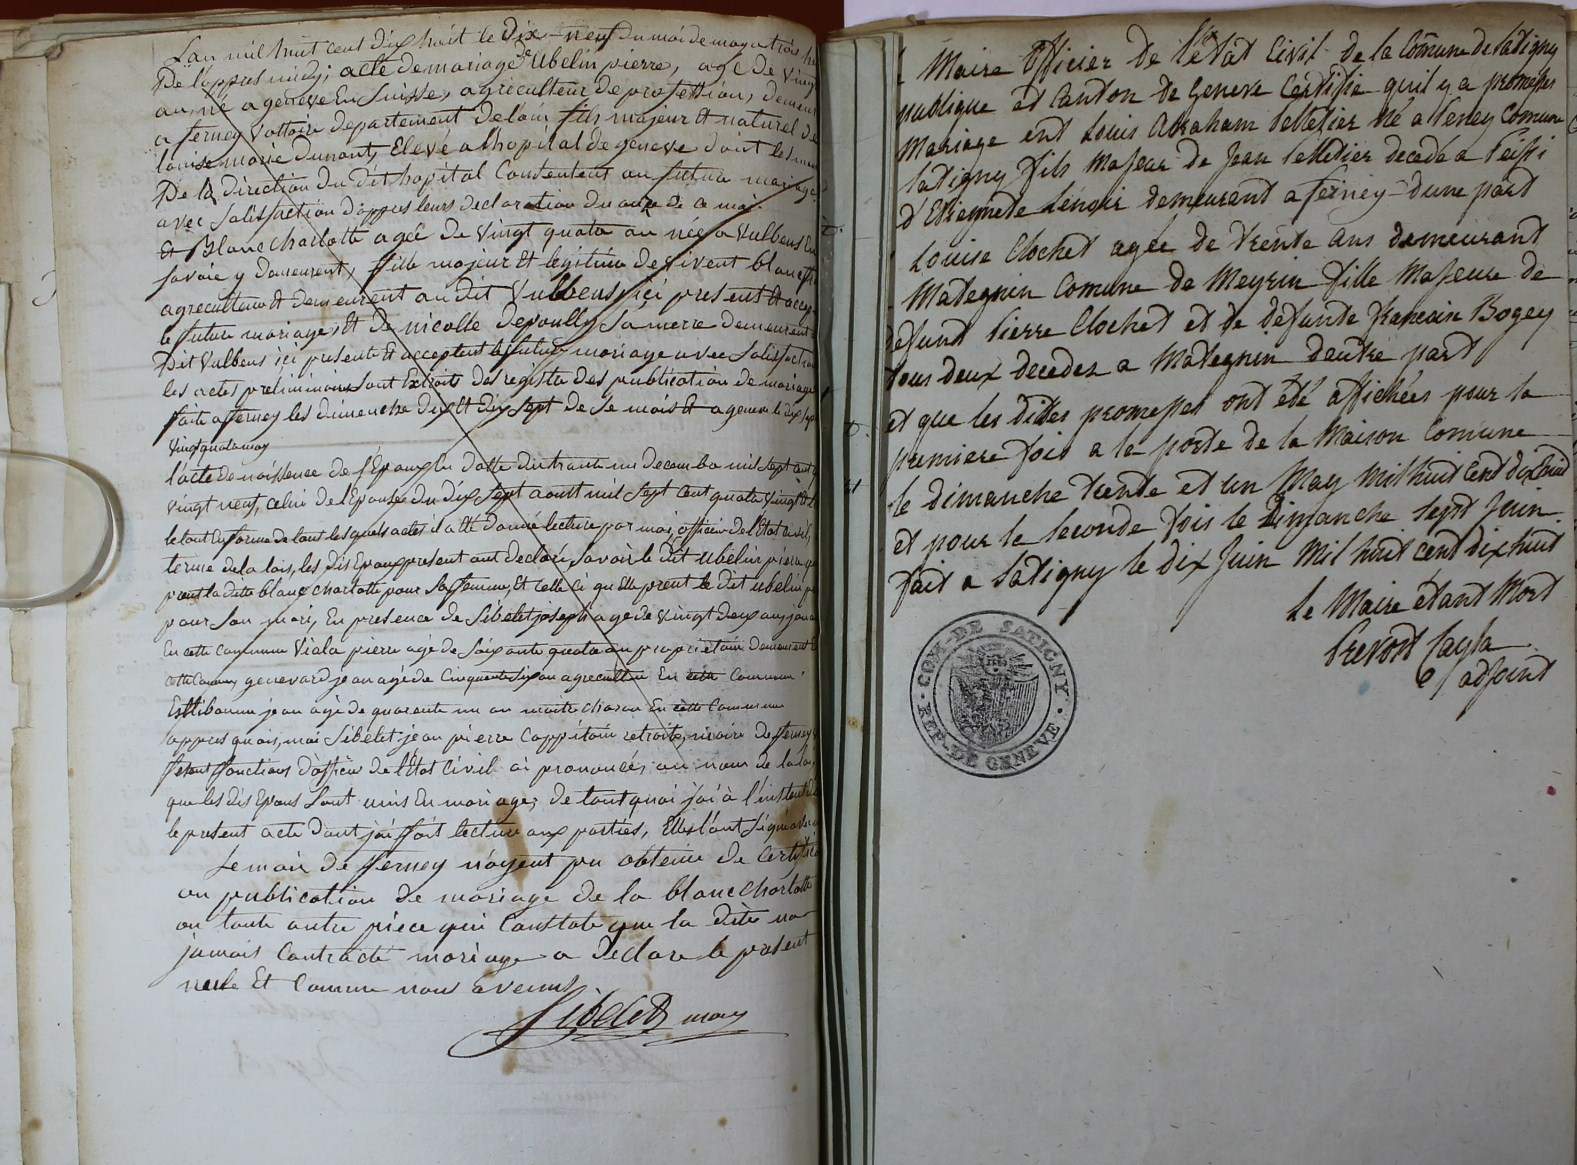 Lan mil huit cent dix huit le Dix-neuf du mois de may a trois he
De lappres midy; acte de mariage de Ubelin pierre, agé de vingt
an né a geneve En Suisse, agriculteur de profession, demeur
a ferney Voltaire departement de lain fils majeur Et naturel de
louise marie Dunant, Elevé a lhopital de geneve dont les mem
De la direction du dit hopital Consentent au futur mariage
avec Satisfaction dappres leurs declaration du onze de ce moi.
Et Blanc Charlotte agée de Vingt quatre an née a Vulbens En
Savoie y demeurent, fille majeur Et legitime de vivent blanc
agriculteur Et demeurent au dit Vulbens, içi present Et accep
le future mariage, Et de nicolle depouilly Sa merre demeurent
Dit Vulbens içi presente Et acceptent le futur mariage avec Satisfaction
les actes preliminaires Sont Extraits des registre des publication de mariage
faite a ferney les dimenche dix Et dix Sept de Se mois Et a geneve le dix Sept
Vingt quatre may
l'acte de naissence de l'Epoux En datte du trante un decembre mil Sept cent
vingt neuf, celui de l'Epouse du dix Sept aoust mil Sept Cent quatre vingt
le tout En forme de tout les quels actes il a Eté donné lecture par moi, officier de l'Etat civil,
terme de la lois, les dis Epoux present ont declaré Savoir le dit ubelin pierre
prent la dite blanc charlotte pour Sa femme, Et celle Ci qu Elle prent le dit ubelin
pour Son mari, En presence de Sibelet joseph agé de Vingt deux ans
En cette Commune Viala pierre agé de Soixante quatre an proprietaire demeurent
cette Commune, genevard jean agé de Cinquente Six an agriculteur En cette Commune
Estibanne jean agé de quarante un an maitre charon En cette Commune
appres quoi, moi Sibelet jean pierre Cappitaine retraite, maire de ferney
fesant fonctions d'officier de l'Etat Civil ai prononcé, au nom de la loi,
que les dis Epoux Sont unis En mariage; de tout quoi j'ai à l'instant
le present acte dont jai fait lecture aux parties, Elles l'ont Signé avec
Le maire de ferney n'ayent pu obtenir de Certific
ou publication de mariage de la blanc charlotte
ou toute autre pièce qui Constate que la dite na
jamais Contracté mariage a Déclare le present
nulle Et Comme non avenus
Sibelet may
Maire Officier de l'état Civil de la Comune de Satigny
publique et Canton de Geneve Certifie qu'il y a promesses
Mariage ent Louis Abraham Pelletier Né a Peney Comune
Satigny fils Majeur de Jean Pelletier decédé a Peissi
d'Etiennete Lenoir demeurant a ferney - d'une part
Louise Clochet agée de trente ans demeurant
Mategnin Comune de Meyrin fille Majeure de
défunt Pierre Clochet et de défunte françoise Bogey
tous deux decedez a Mategnin d'autre part
et que les dittes promesses ont été affichées pour la
premiere fois a la porte de la Maison Comune
le dimanche trente et un May Mil huit Cent dix huit
et pour la Seconde fois le Dimanche Sept Juin
fait a Satigny le dix Juin Mil huit cent dix huit
Le Maire étant Mort
Prevost Cayla
adjoint
COM. DE SATIGNY
REP. DE GENEVE